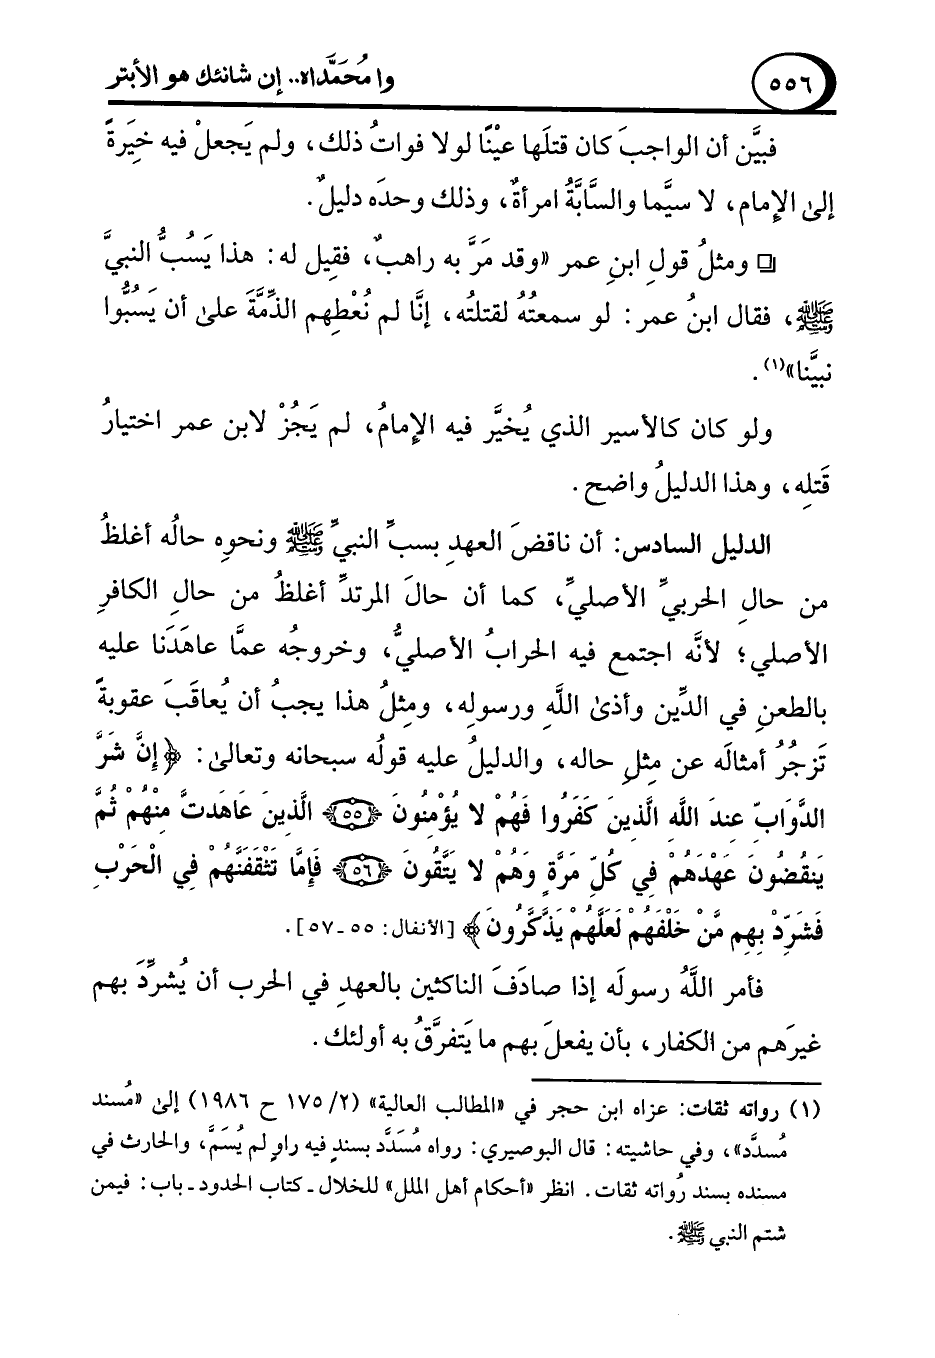 ٥٥٦
وا مُحَمَّداه.. إن شانئك هو الأبتر
فبيَّن أن الواجبَ كان قتلَها عيْنًا لولا فواتُ ذلك، ولم يَجعلْ فيه خِيَرةً
إلى الإمام، لا سيَّما والسَّابَّةُ امرأةٌ، وذلك وحدَه دليلٌ.
❑ ومثلُ قولِ ابنِ عمر «وقد مَرَّ به راهبٌ، فقِيل له: هذا يَسُبُّ النبيَّ
ﷺ، فقال ابنُ عمر: لو سمعتُهُ لقتلتُه، إنَّا لم نُعْطِهم الذِّمَّةَ على أن يَسُبُّوا
نبيَّنا»(١).
ولو كان كالأسير الذي يُخيَّر فيه الإمامُ، لم يَجُزْ لابن عمر اختيارُ
قَتلِه، وهذا الدليلُ واضح.
الدليل السادس: أن ناقضَ العهدِ بسبِّ النبيِّ ﷺ ونحوِه حالُه أغلظُ
من حالِ الحربيِّ الأصليِّ، كما أن حالَ المرتدِّ أغلظُ من حالِ الكافرِ
الأصلي؛ لأنَّه اجتمع فيه الحرابُ الأصليُّ، وخروجُه عمَّا عاهَدَنا عليه
بالطعنِ في الدِّين وأذى اللَّهِ ورسولِه، ومثِلُ هذا يجبُ أن يُعاقَبَ عقوبةً
تَزجُرُ أمثالَه عن مثِلِ حاله، والدليلُ عليه قولُه سبحانه وتعالى: ﴿إِنَّ شَرَّ
الدَّوَابِّ عِندَ اللَّهِ الَّذِينَ كَفَرُوا فَهُمْ لا يُؤْمِنُونَ ﴿٥٥﴾ الَّذِينَ عَاهَدتَّ مِنْهُمْ ثُمَّ
يَنقُضُونَ عَهْدَهُمْ فِي كُلِّ مَرَّةٍ وَهُمْ لا يَتَّقُونَ ﴿٥٦﴾ فَإِمَّا تَثْقَفَنَّهُمْ فِي الْحَرْبِ
فَشَرِّدْ بِهِم مَّنْ خَلْفَهُمْ لَعَلَّهُمْ يَذَّكَّرُونَ﴾ [الأنفال: ٥٥ـ٥٧].
فأمر اللَّهُ رسولَه إذا صادَفَ الناكثين بالعهدِ في الحرب أن يُشرِّدَ بهم
غيرَهم من الكفار، بأن يفعلَ بهم ما يَتفرَّقُ به أولئك.
(١) رواته ثقات: عزاه ابن حجر في «المطالب العالية» (٢/ ١٧٥ ح ١٩٨٦) إلى «مُسند
مُسدَّد»، وفي حاشيته: قال البوصيري: رواه مُسَدَّد بسندٍ فيه راوٍ لم يُسَمَّ، والحارث في
مسنده بسند رُواته ثقات. انظر «أحكام أهل الملل» للخلال ـ كتاب الحدود ـ باب: فيمن
شتم النبي ﷺ.